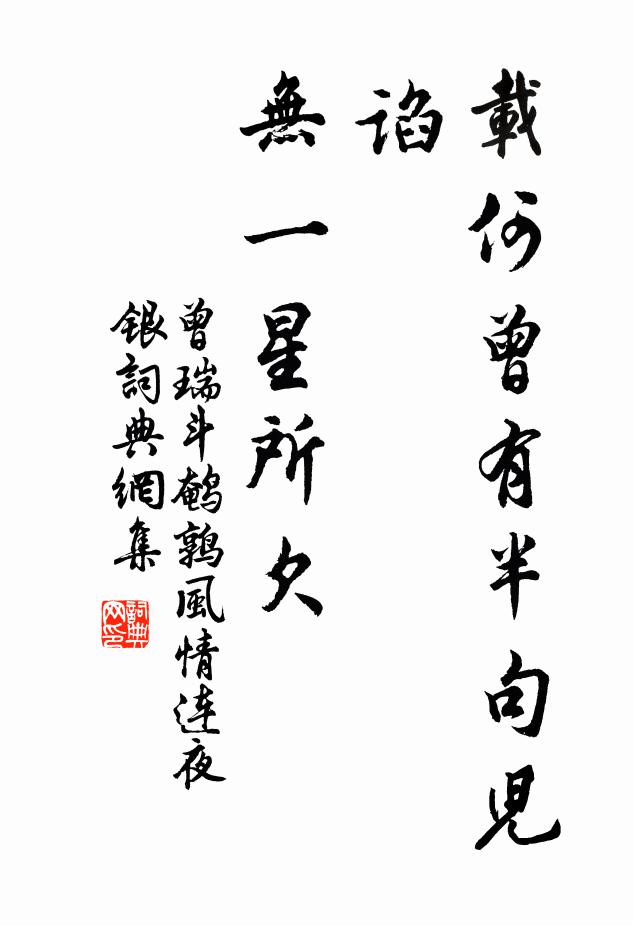 載何曾有半句兒
谄
無一星所欠
曾瑞斗鹌鹑風情连夜
银詞典網集
詞典网印